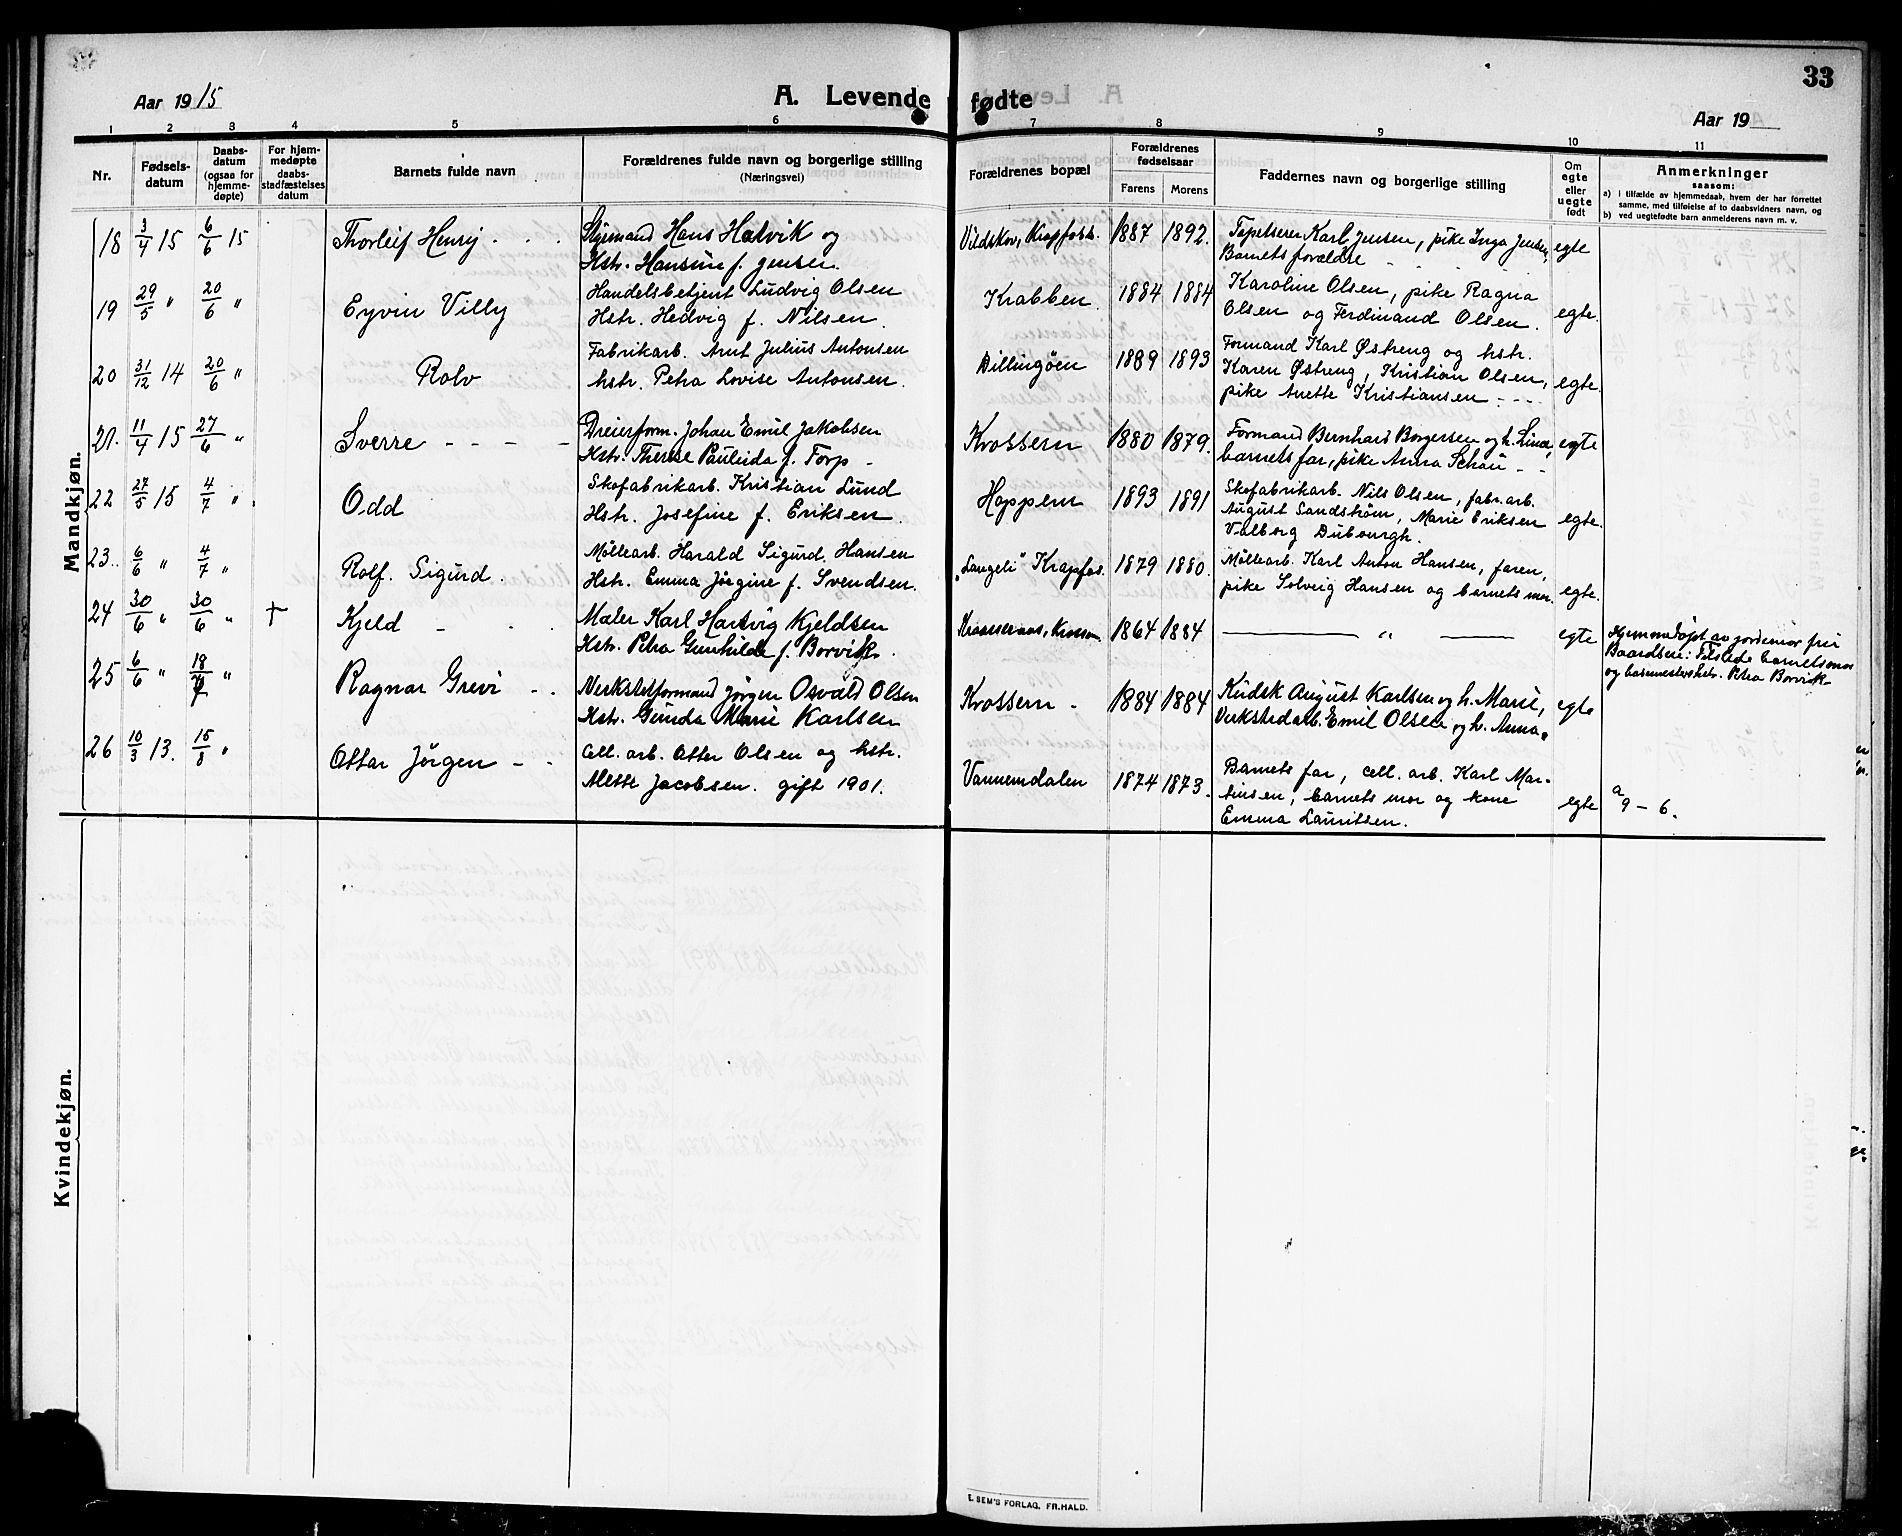 Aar 1915
A. Levende fødte
33
Aar 19
1 2 3 4 5 6 7 8 9 10 11
Nr.
Fødsels-
datum
Daabs-
datum
(ogsaa for
hjemme-
døpte)
For hjem-
medøpte
daabs-
stadfæstelses
datum
Barnets fulde navn
Forældrenes fulde navn og borgerlige stilling
(Næringsvei)
Forældrenes bopæl
Forældrenes
fødselsaar
Farens Morens
Faddernes navn og borgerlige stilling
Om
egte
eller
uegte
født
Anmerkninger
saasom:
a) i tilfælde av hjemmedaab, hvem der har forrettet
samme, med tilføielse af to daabsvidners navn, og
b) ved uegtefødte barn anmelderens navn m. v.
Mandkjøn.
18 3/4 15 6/6 15 Thorleif Henry Styrmand Hans Halvik og
Hstr. Hansine f. Jensen.
Vildskov, Krapfoss. 1887 1892. Tapetserer Karl Jensen, pike Inga Jensen,
Barnets forældre egte
19 29/5 " 20/6 " Eyvin Villy Handelsbetjent Ludvig Olsen
Hstr. Hedvig f. Nilsen.
Krabben 1884 1884 Karoline Olsen, pike Ragna
Olsen og Ferdinand Olsen. egte.
20 31/12 14 20/6 " Rolv Fabrikarb. Arnt Julius Antonsen
hstr. Petra Lovise Antonsen.
Dillingøen 1889 1893 Formand Karl Østreng og hstr.
Karen Østreng, Kristian Olsen,
pike Anette Kristiansen egte.
21. 11/4 15 27/6 " Sverre Dreierform. Johan Emil Jakobsen
Hstr. Therese Pauleida f. Torp
Krossern 1880 1879. Formand Bernhard Borgersen og h. Lina,
barnets far, pike Anna Schau egte
22 27/5 15 4/7 " Odd Skofabrikarb. Kristian Lund
Hstr. Josefine f. Eriksen.
Hoppern 1893 1891 Skofabrikarb. Nils Olsen, fabr. arb.
August Sandstrøm, Marie Eriksen
Valborg Dubourgh. egte.
23. 6/6 " 4/7 " Rolf Sigurd. Møllearb. Harald Sigurd Hansen
Hstr. Emma Jørgine f. Svendsen.
"Langeli" Krapfos. 1879 1880. Møllearb. Karl Anton Hansen, faren,
pike Solveig Hansen og barnets mor. egte.
24 30/6 " 30/6 " † Kjeld Maler Karl Hartvig Kjeldsen
Hstr. Petra Gunhilde f. Borvik.
1864 1884 " egte Hjemmedøpt av jordemor fru
Baardsen: Tilstede barnets mor
og Petra Borvik
25 6/6 " 18/7 " Ragnar Grevi Verkstedformand Jørgen Osvald Olsen
Hstr. Gunda Marie Karlsen
Krossern 1884 1884 Kudsk August Karlsen og h. Marie,
Verkstedarb. Emil Olsen og h. Anna. egte
26 10/3 13. 15/8 " Ottar Jørgen Cell. arb. Otter Olsen og hstr.
Alette Jacobsen. gift 1901.
Vannemdalen 1874 1873. Barnets far, cell. arb. Karl Mar-
tinsen, barnets mor og kone
Emma Lauritsen. egte a 9 – 6.
Kvindekjøn.
E. SEM'S FORLAG, FR.HALD.